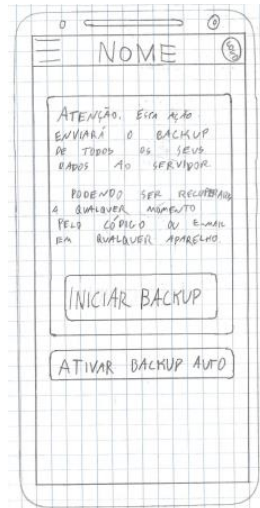 NOME
LOGO
ATENÇÃO, ESTA AÇÃO
ENVIARÁ O BACKUP
DE TODOS OS SEUS
DADOS AO SERVIDOR
PODENDO SER RECUPERADO
A QUALQUER MOMENTO
PELO CÓDIGO OU E-MAIL
EM QUALQUER APARELHO.
INICIAR BACKUP
ATIVAR BACKUP AUTO